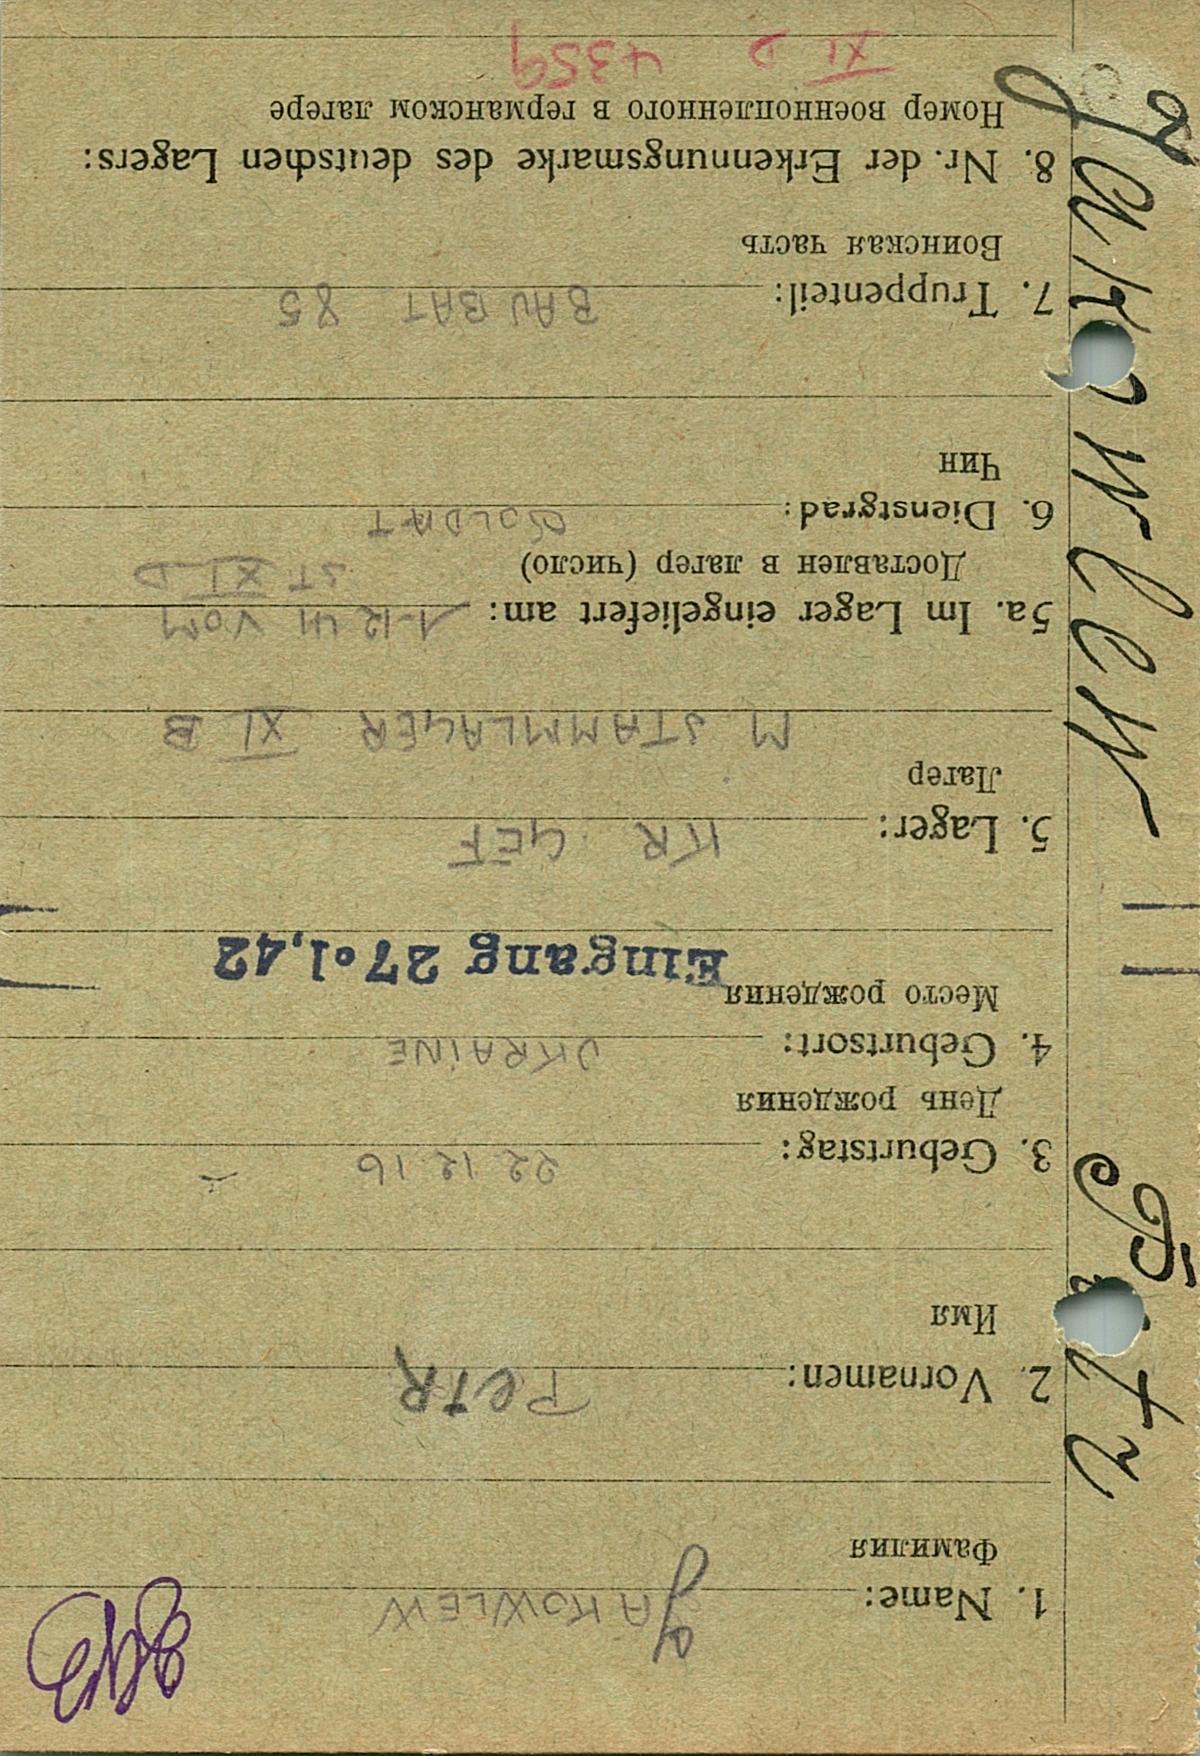 1. Name: JAKOWLEW
Фамилия
2. Vornamen: PeTR
Имя
3. Geburtstag: 22 12 16
День рождения
4. Geburtsort: UKRAINE
Место рождения
Eingang 27.1.42
5. Lager: KR. GEF
Лагер
M. STAMMLAGER XI B
5a. Im Lager eingeliefert am: 1.12 41 VOM
Доставлен в лагер (число) ST XI D
6. Dienstgrad: SOLDAT
Чин
7. Truppenteil: BAU BAT 85
Воинская часть
8. Nr. der Erkennungsmarke des deutschen Lagers:
Номер военнопленного в германском лагере
XI D 4359
Jakowlew Petr